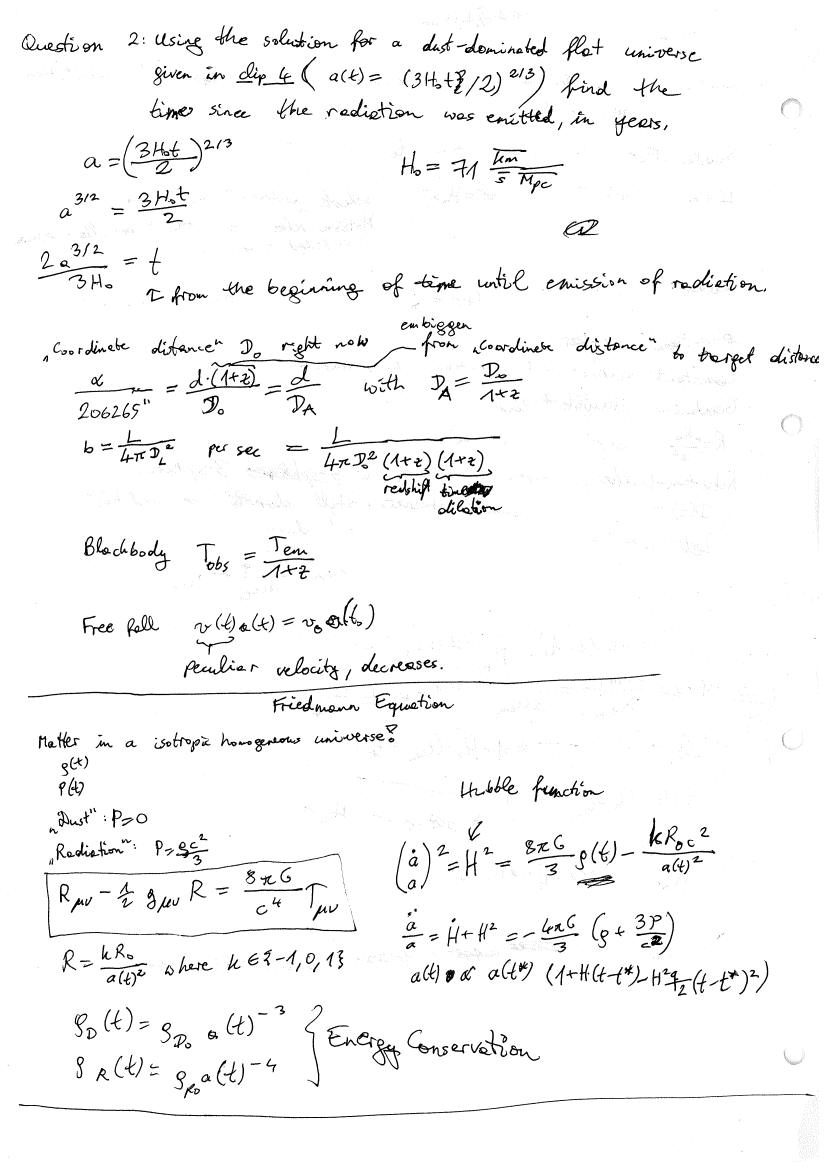 Question 2: Using the solution for a dust-dominated flat universe
given in clip 4 ( a(t) = (3H₀t/2)^2/3 ) find the
time since the radiation was emitted, in years.
a = (3H₀t/2)^2/3
H₀ = 71 km/s Mpc
a^3/2 = 3H₀t/2
2a^3/2 / 3H₀ = t
from the beginning of time until emission of radiation.
embiggen
„Coordinate distance" D₀ right now from „Coordinate distance" to target distance
α/206265" = d·(1+z)/D₀ = d/D_A with D_A = D₀/1+z
b = L/4πD_L² per sec = L/4πD₀² (1+z) (1+z)
redshift time
dilation
Blackbody T_obs = T_em/1+z
Free fall v(t)a(t) = v₀ a(t₀)
peculiar velocity, decreases.
Friedmann Equation
Matter in a isotropic homogeneous universe?
ρ(t)
P(t)
Hubble function
„Dust": P=0
„Radiation": P=ρc²/3
(ȧ/a)² = H² = 8πG/3 ρ(t) − kR₀c²/a(t)²
R_μν − 1/2 g_μν R = 8πG/c⁴ T_μν
ä/a = Ḣ+H² = −4πG/3 (ρ + 3P/c²)
R = kR₀/a(t)² where k ∈ {−1,0,1}
a(t) ∝ a(t*) (1+H(t−t*)−H²q/2(t−t*)²)
ρ_D(t) = ρ_D₀ a(t)^−3
Energy Conservation
ρ_R(t) = ρ_R₀ a(t)^−4